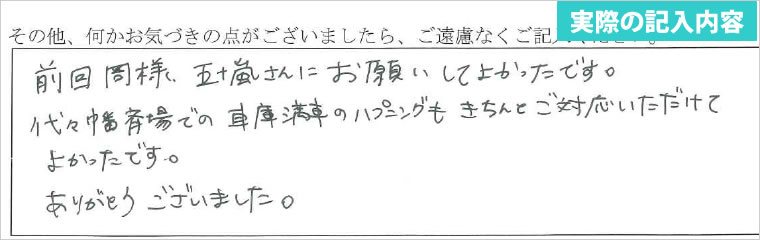 実際の記入内容
その他、何かお気づきの点がございましたら、ご遠慮なくご記入ください。
前回同様、五十嵐さんにお願いしてよかったです。
代々幡斎場での車庫満車のハプニングもきちんとご対応いただけて
よかったです。
ありがとうございました。